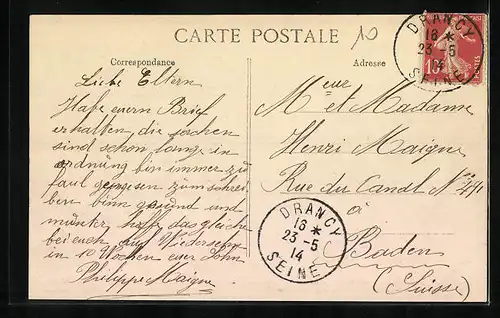 CARTE POSTALE
10
Correspondance
Adresse
Liebe Eltern
Habe euern Brief
erhalten, die sachen
sind schon lange in
ordnüng bin immer zu
faul gewesen zum schrei
ben binn gesund und
munter, hoffe das gleiche
bei euch, auf Wiedersehn
in 10 Wochen euer Sohn
Philippe Maigue
Mr et Madame
Henri Maigue
Rue du Candt No
à
Baden
(Suisse)
DRANCY
18 *
23 -5
SEINE
10
DRANCY
18 *
23 -5
14
SEINE